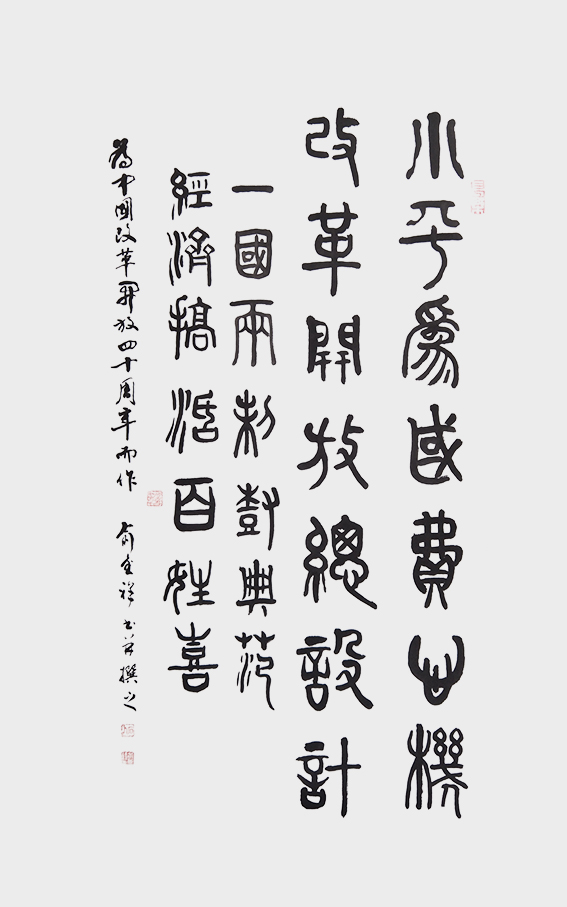 小平為國費心機
改革開放總設計
一國兩制樹典范
經濟搞活百姓喜
為中國改革開放四十周年而作 俞金祥书并撰之